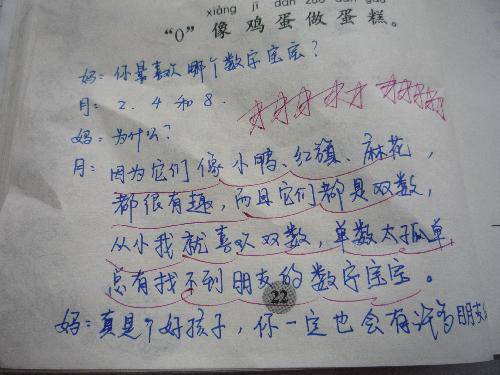 xiàng jī dàn zuò dàn gāo
“0”像鸡蛋做蛋糕。
妈:你最喜欢哪个数字宝宝?
月:2、4和8.
妈:为什么?
月:因为它们像小鸭、红旗、麻花,
都很有趣,而且它们都是双数,
从小我就喜欢双数,单数太孤单,
总有找不到朋友的数字宝宝。
22
妈:真是个好孩子,你一定也会有许多朋友